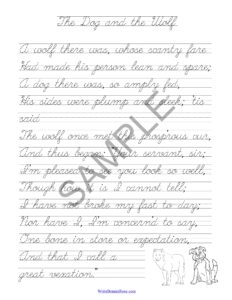 The Dog and the Wolf
A wolf there was, whose scanty fare
Had made his person lean and spare;
A dog there was, so amply fed,
His sides were plump and sleek; 'tis
said
The wolf once met this prosp'rous cur,
And thus began: "Your servant, sir;
I'm pleased to see you look so well,
Though how it is I cannot tell;
I have not broke my fast to day;
Nor have I, I'm concern'd to say,
One bone in store or expectation,
And that I call a
great vexation."
SAMPLE